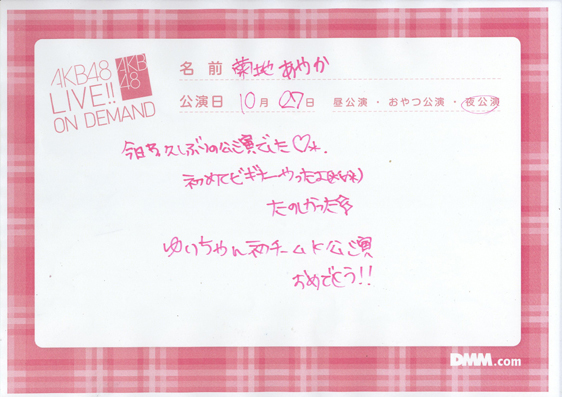 AKB48
LIVE!!
ON DEMAND
AKB
48
名前 菊地あやか
公演日 10月27日 昼公演・おやつ公演・夜公演
今日は久しぶりの公演でした♡
初めてビギナーやったよ
たのしかった
ゆいちゃん初チームK公演
おめでとう!!
DMM.com